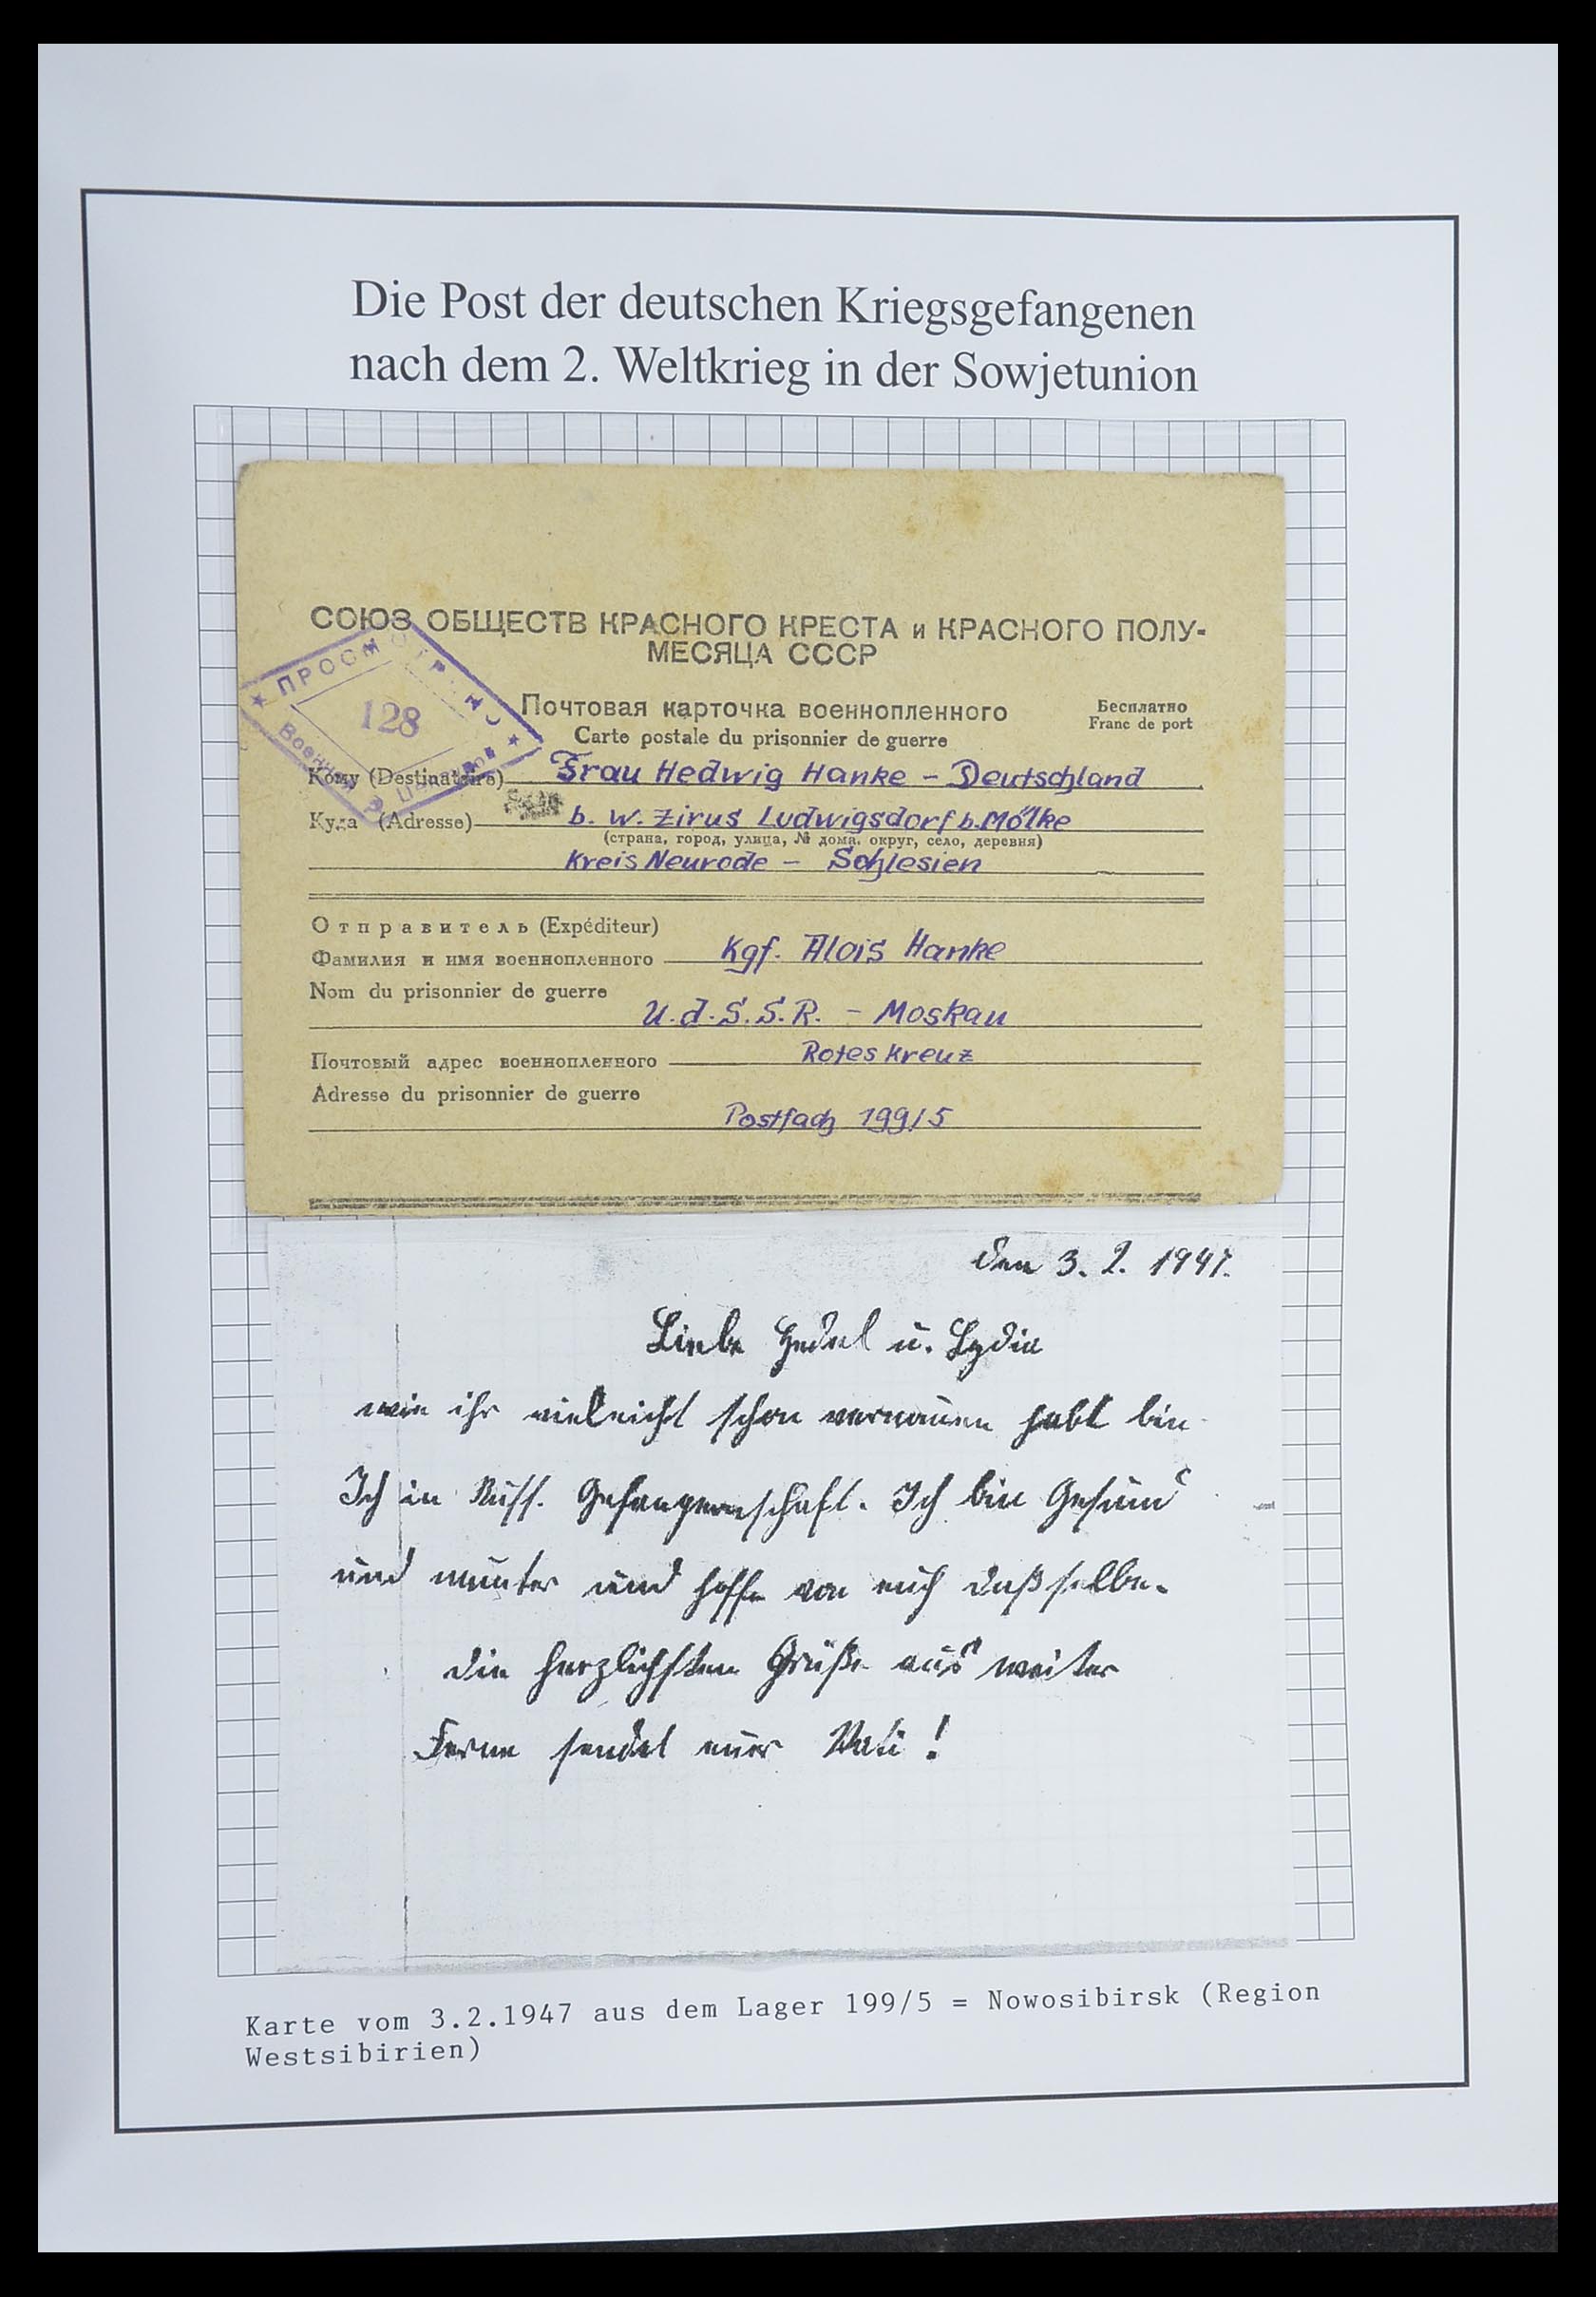 Die Post der deutschen Kriegsgefangenen
nach dem 2. Weltkrieg in der Sowjetunion
СОЮЗ ОБЩЕСТВ КРАСНОГО КРЕСТА и КРАСНОГО ПОЛУ-
МЕСЯЦА СССР
ПРОСМОТРЕНО
128
Военной
Почтовая карточка военнопленного
Бесплатно
Carte postale du prisonnier de guerre
Franc de port
Кому (Destinataire) Frau Hedwig Hanke - Deutschland
Куда (Adresse) b. W. Zirus Ludwigsdorf b. Mölke
(страна, город, улица, № дома, округ, село, деревня)
Kreis Neurode - Schlesien
Отправитель (Expéditeur)
Фамилия и имя военнопленного Kgf. Alois Hanke
Nom du prisonnier de guerre
U.d.S.S.R. - Moskau
Почтовый адрес военнопленного Rotes Kreuz
Adresse du prisonnier de guerre
Postfach 199/5
den 3. 2. 1947.
Liebe Hedel u. Lydia
wie ihr vieleicht schon vernomen habt bin
Ich in Russ. Gefangenschaft. Ich bin Gesund
und munter und hoffe von euch daßselbe.
die herzlichsten Grüße aus weiter
Ferne sendet euer Vati!
Karte vom 3.2.1947 aus dem Lager 199/5 = Nowosibirsk (Region
Westsibirien)